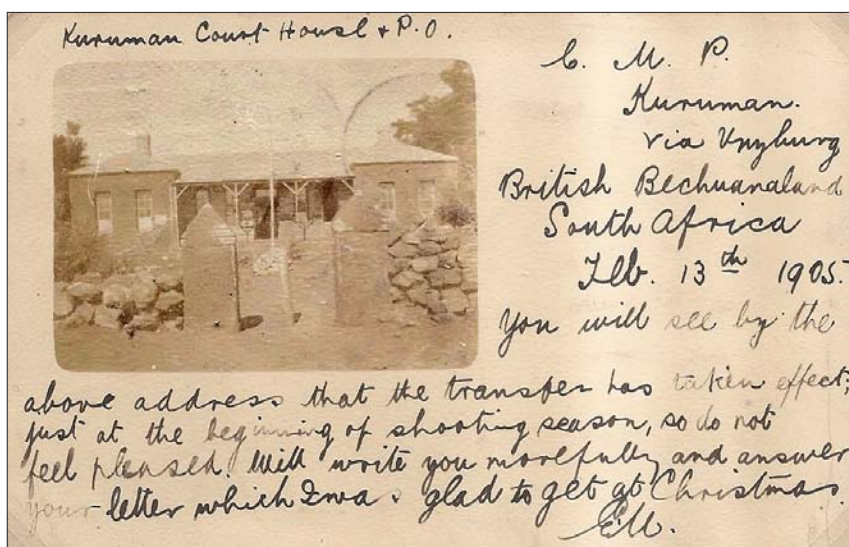 Kuruman Court House & P.O.
C. M. P.
Kuruman.
via Vryburg
British Bechuanaland
South Africa
Feb. 13th 1905.
You will see by the
above address that the transfer has taken effect;
just at the beginning of shooting season, so do not
feel pleased. Will write you more fully and answer
your letter which I was glad to get at Christmas.
EM.